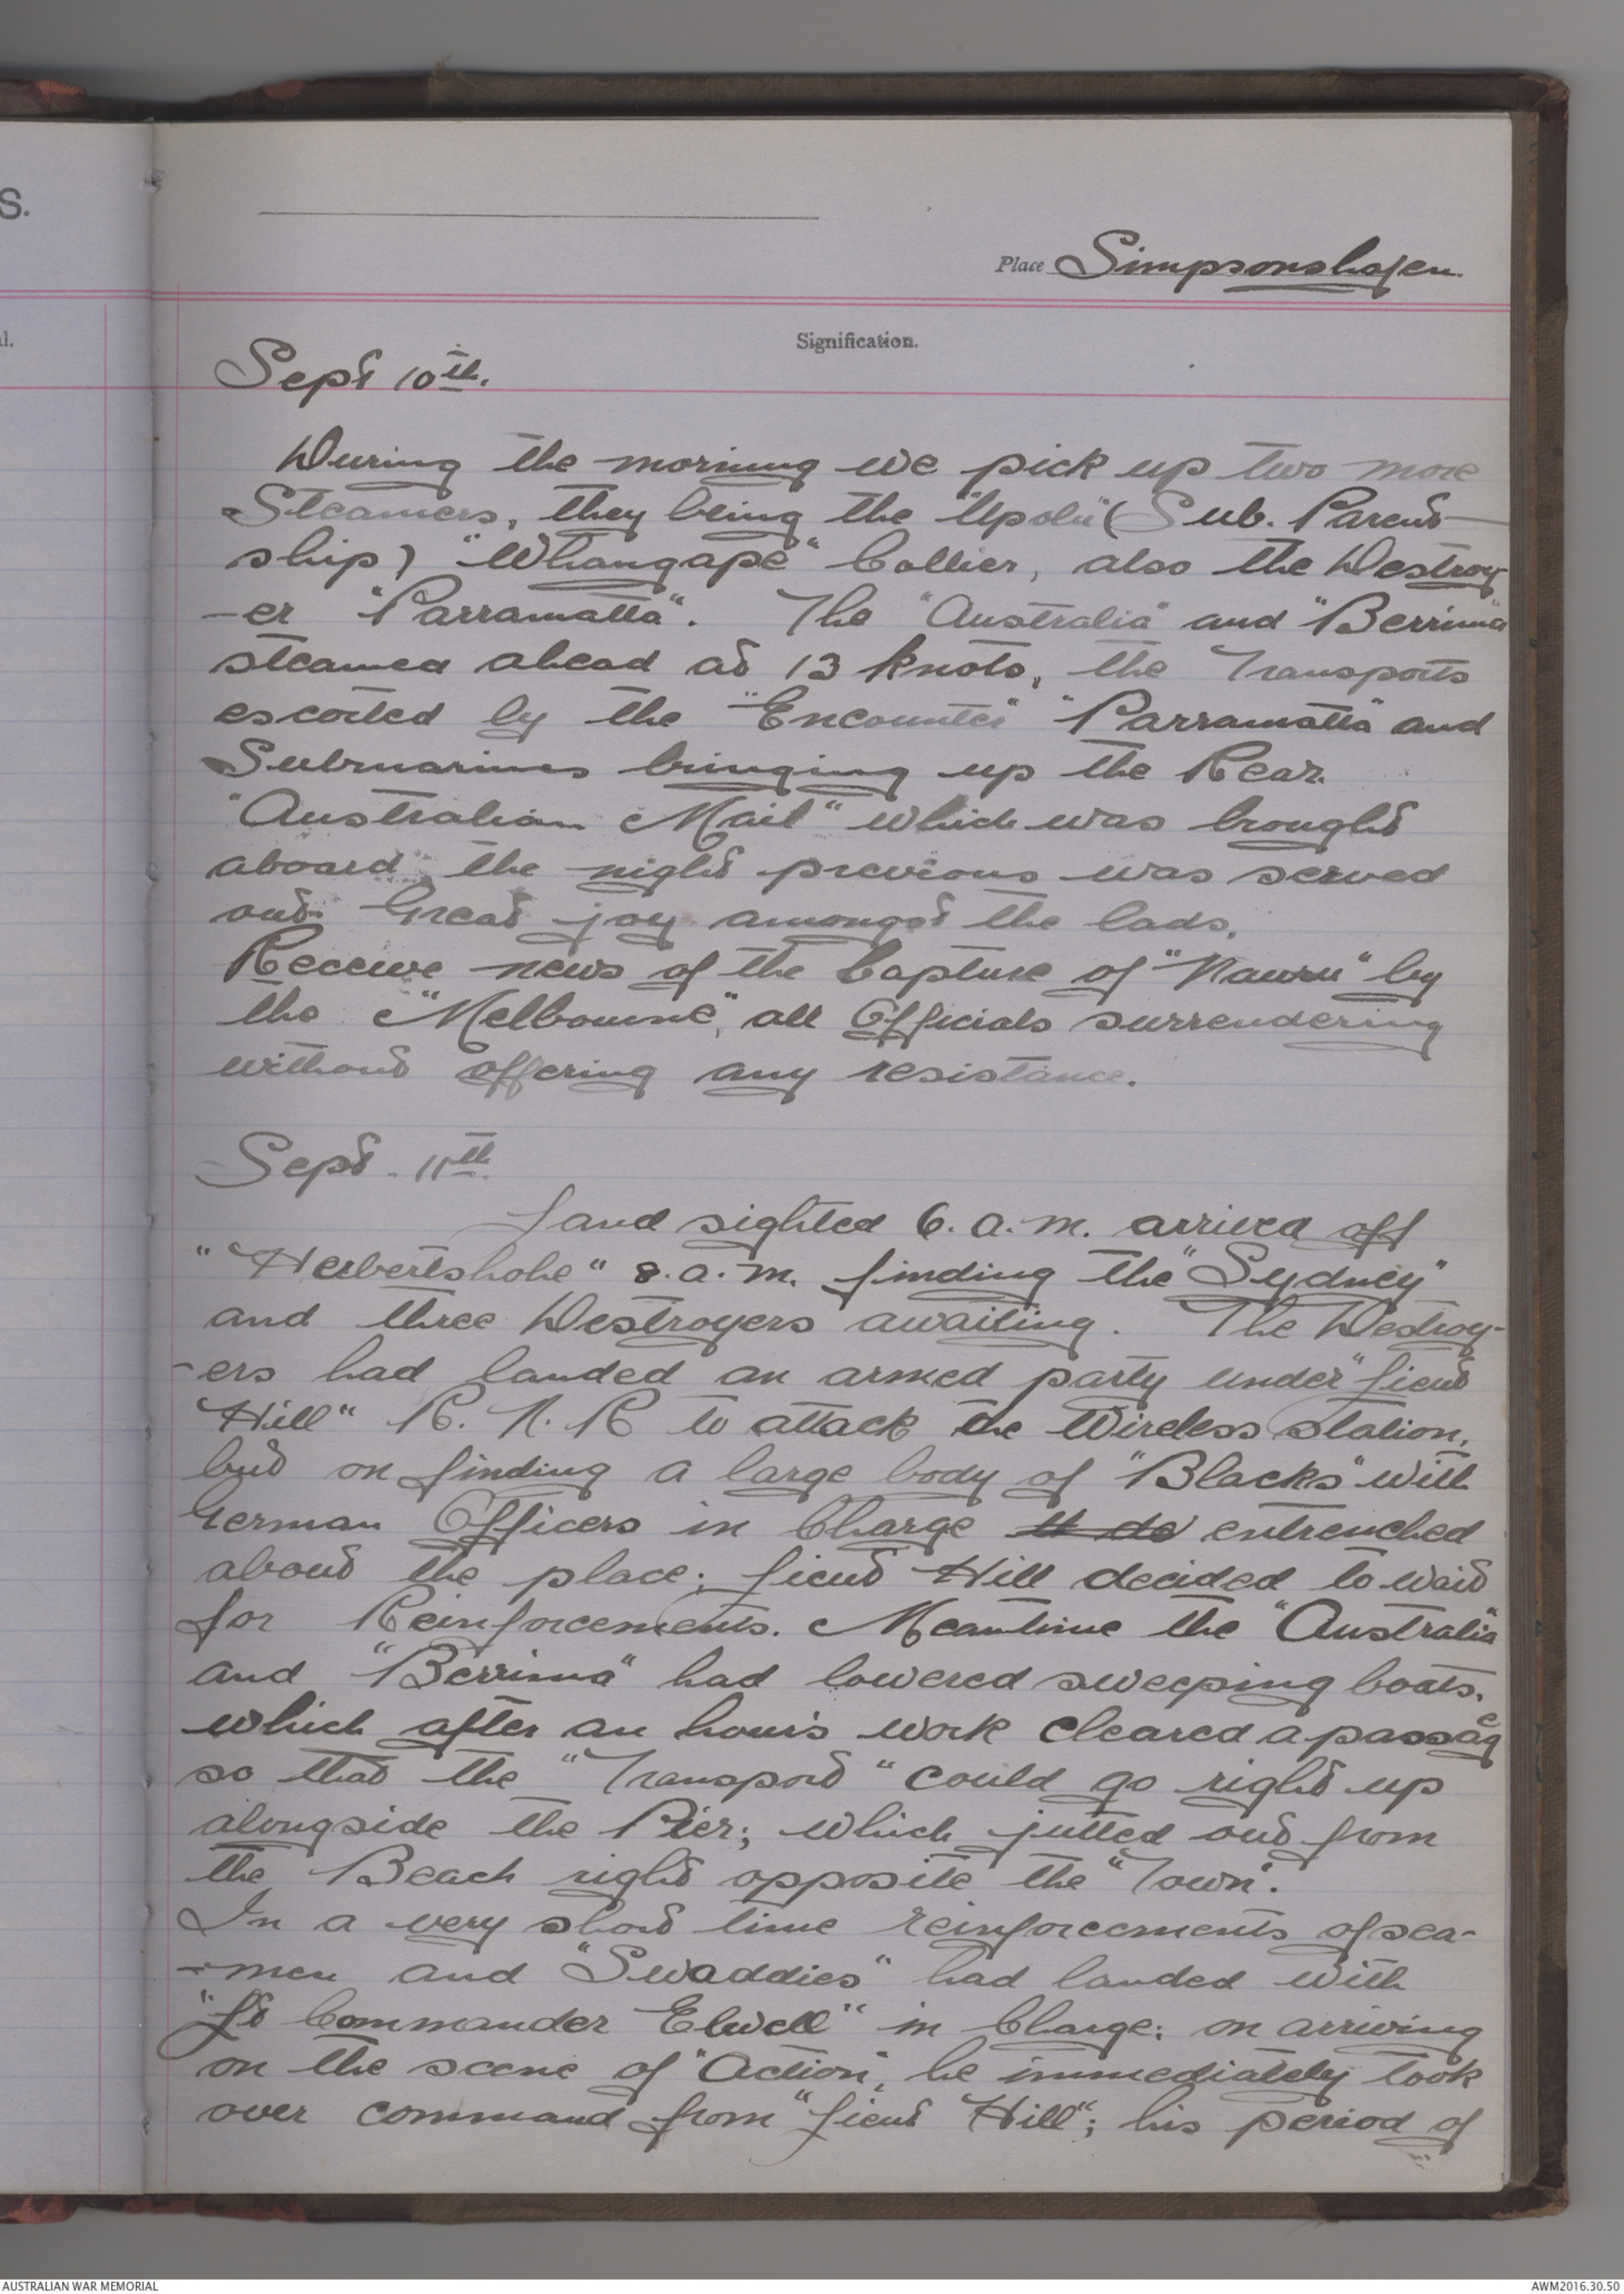 S.
Place Simpsonshafen.
l.
Signification.
Sept 10th.
During the morning we pick up two more
Steamers, they being the "Upolu" (Sub. Parent
ship) "Whangape" Collier, also the Destroy
-er "Parramatta". The "Australia" and "Berrima"
steamed ahead at 13 knots, the Transports
escorted by the "Encounter" "Parramatta" and
Submarines bringing up the Rear.
"Australian Mail" which was brought
aboard the night previous was served
out. Great joy amongst the lads.
Receive news of the Capture of "Nauru" by
the "Melbourne", all Officials surrendering
without offering any resistance.
Sept. 11th.
Land sighted 6. a.m. arrived off
"Herbertshohe" 8. a.m. finding the "Sydney"
and three Destroyers awaiting. The Destroy-
-ers had landed an armed party under "Lieut
Hill" R. N. R to attack the Wireless station,
but on finding a large body of "Blacks" with
German Officers in Charge entrenched
about the place; Lieut Hill decided to wait
for Reinforcements. Meantime the "Australia"
and "Berrima" had lowered sweeping boats,
which after an hour's work cleared a passage
so that the "Transport" could go right up
alongside the Pier; which jutted out from
the Beach right opposite the "Town".
In a very short time reinforcements of sea-
-men and "Swaddies" had landed with
"Lt Commander Elwell" in Charge; on arriving
on the scene of "Action", he immediately took
over command from "Lieut Hill"; his period of
AUSTRALIAN WAR MEMORIAL
AWM2016.30.50